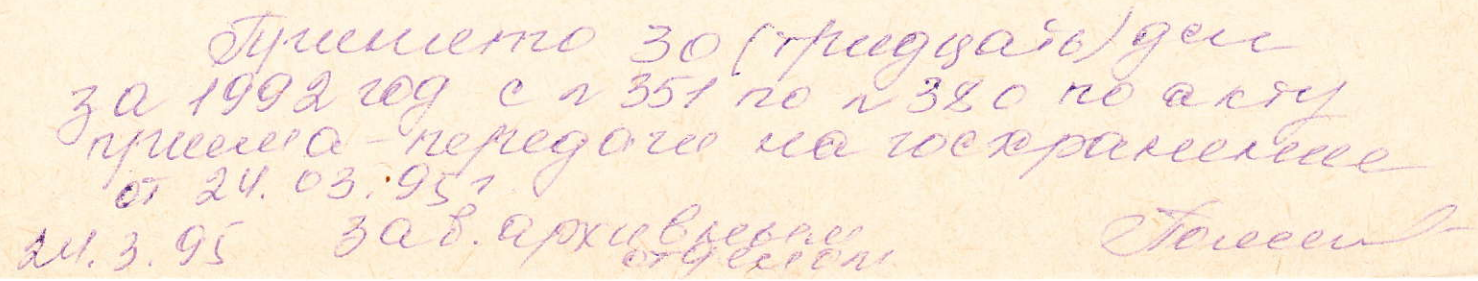 Принято 30 (тридцать) дел
за 1992 год с № 351 по № 380 по акту
приема-передачи на госхранение
от 24.03.95 г.
24.3.95 зав. архивным
отделом